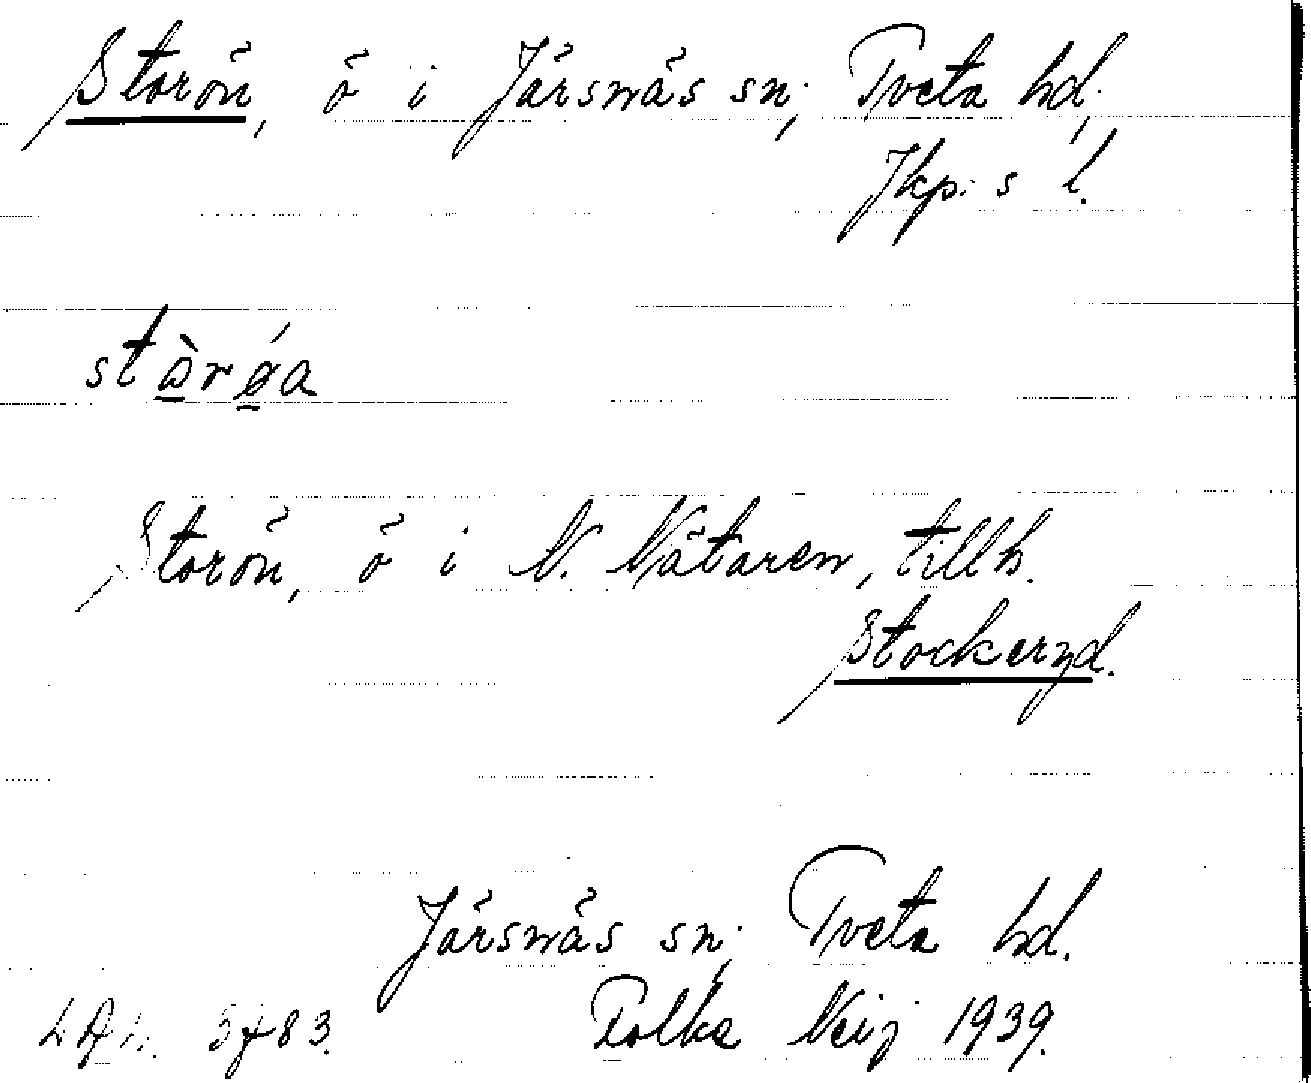 Storön, ö i Järsnäs sn; Tveta hd,
Jkp:s l.
Storön, ö i N. Nätaren, tillh.
Stockeryd.
Järsnäs sn; Tveta hd.
Folke Neij 1939.